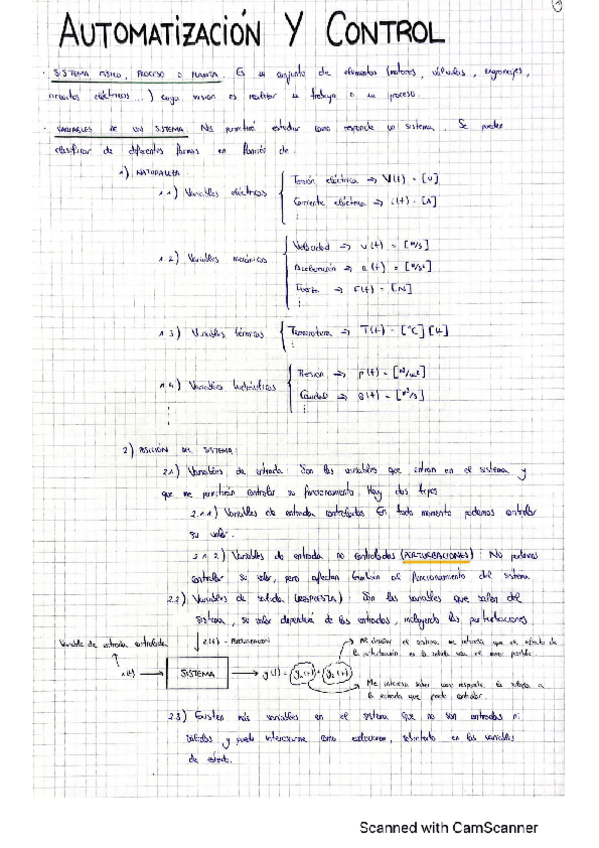 AUTOMATIZACIÓN Y CONTROL
· SISTEMA FÍSICO, PROCESO O PLANTA. Es un conjunto de elementos (motores, válvulas, engranajes,
circuitos eléctricos...) cuya misión es realizar un trabajo o un proceso.
· VARIABLES DE UN SISTEMA. Nos permitirá estudiar como responde un sistema. Se pueden
clasificar de diferentes formas en función de.
1) NATURALEZA
1.1) Variables eléctricas
Tensión eléctrica => V(t) = [V]
Corriente eléctrica => i(t) = [A]
1.2) Variables mecánicas
Velocidad => v(t) = [m/s]
Aceleración => a(t) = [m/s²]
Fuerza => F(t) = [N]
1.3) Variables térmicas
Temperatura => T(t) = [°C] [K]
1.4) Variables hidráulicas
Presión => p(t) = [N/m²]
Caudal => Q(t) = [m³/s]
2) POSICIÓN DEL SISTEMA:
2.1) Variables de entrada: Son las variables que entran en el sistema y
que me permitirán controlar su funcionamiento. Hay dos tipos
2.1.1) Variables de entrada controladas En todo momento podemos controlar
su valor.
2.1.2) Variables de entrada no controladas (PERTURBACIONES): No podemos
controlar su valor, pero afectan también al funcionamiento del sistema
2.2) Variables de salida (RESPUESTA): Son las variables que salen del
sistema, su valor dependerá de las entradas, incluyendo las perturbaciones
Variable de entrada controlada
z(t) = PERTURBACIÓN
Me el sistema me interesa que el efecto de
la perturbación en la salida sea el menor posible.
x(t) → SISTEMA → y(t) = y₁(t) + y₂(t)
Me interesa saber como responde la salida a
la entrada que puedo controlar.
2.3) Existen más variables en el sistema que no son entradas ni
salidas y puede interesarme como
de estado.
Scanned with CamScanner